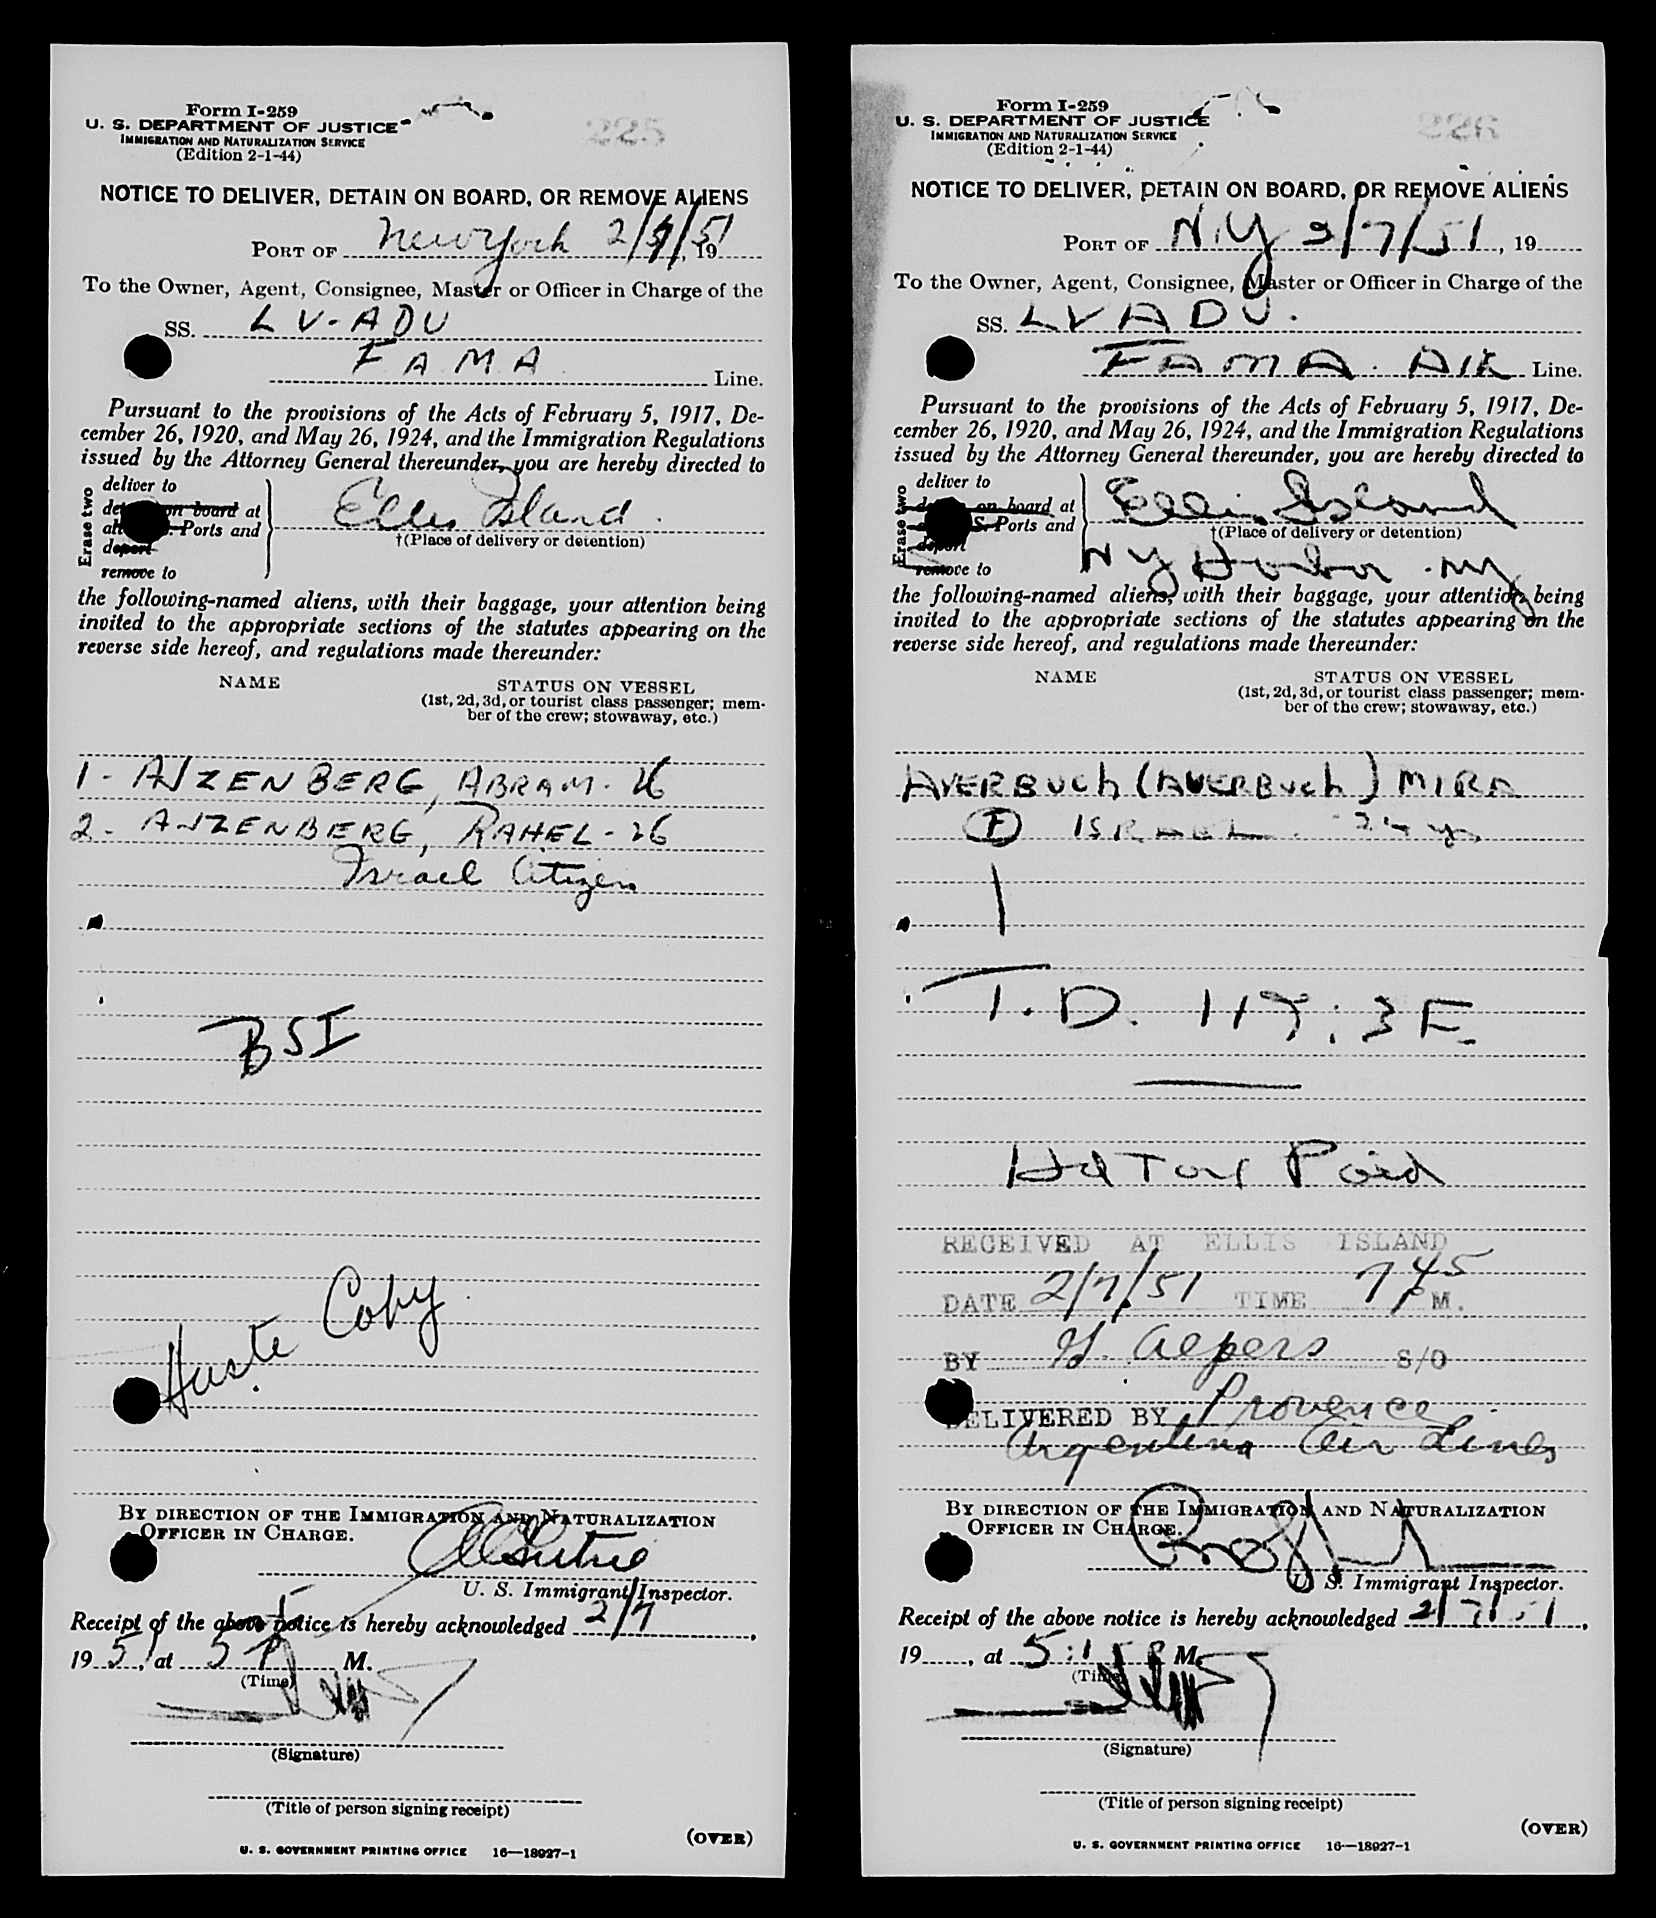 Form I-259
U. S. DEPARTMENT OF JUSTICE
IMMIGRATION AND NATURALIZATION SERVICE
(Edition 2-1-44)
225
NOTICE TO DELIVER, DETAIN ON BOARD, OR REMOVE ALIENS
PORT OF New York 2/7/51, 19
To the Owner, Agent, Consignee, Master or Officer in Charge of the
SS. LV-ADU
FAMA Line.
Pursuant to the provisions of the Acts of February 5, 1917, De-
cember 26, 1920, and May 26, 1924, and the Immigration Regulations
issued by the Attorney General thereunder, you are hereby directed to
Erase two
deliver to
on board at
Ports and
deport
remove to
Ellis Island.
†(Place of delivery or detention)
the following-named aliens, with their baggage, your attention being
invited to the appropriate sections of the statutes appearing on the
reverse side hereof, and regulations made thereunder:
NAME STATUS ON VESSEL
(1st, 2d, 3d, or tourist class passenger; mem-
ber of the crew; stowaway, etc.)
1 - AJZENBERG, ABRAM - 26
2 - AJZENBERG, RAHEL - 26
Israel Citizen
BSI
Copy
BY DIRECTION OF THE IMMIGRATION AND NATURALIZATION
OFFICER IN CHARGE.
U. S. Immigrant Inspector.
Receipt of the above notice is hereby acknowledged 2/7,
1951, at 5 P M.
(Time)
(Signature)
(Title of person signing receipt)
(OVER)
U. S. GOVERNMENT PRINTING OFFICE 16—18927-1
Form I-259
U. S. DEPARTMENT OF JUSTICE
IMMIGRATION AND NATURALIZATION SERVICE
(Edition 2-1-44)
226
NOTICE TO DELIVER, DETAIN ON BOARD, OR REMOVE ALIENS
PORT OF N.Y 2/7/51, 19
To the Owner, Agent, Consignee, Master or Officer in Charge of the
SS. LVADU.
FAMA. AIR Line.
Pursuant to the provisions of the Acts of February 5, 1917, De-
cember 26, 1920, and May 26, 1924, and the Immigration Regulations
issued by the Attorney General thereunder, you are hereby directed to
Erase two
deliver to
on board at
S. Ports and
deport
remove to
Ellis Island
†(Place of delivery or detention)
NY Harbor. NY
the following-named aliens, with their baggage, your attention being
invited to the appropriate sections of the statutes appearing on the
reverse side hereof, and regulations made thereunder:
NAME STATUS ON VESSEL
(1st, 2d, 3d, or tourist class passenger; mem-
ber of the crew; stowaway, etc.)
AVERBUCH (AUERBUCH) MIRA
(F) ISRAEL. 24 yrs
1
T.D.
Hd Tax Paid
RECEIVED AT ELLIS ISLAND
DATE 2/7/51 TIME 7 45 P M.
BY S/O
DELIVERED BY Provence
Argentina Air Lines
BY DIRECTION OF THE IMMIGRATION AND NATURALIZATION
OFFICER IN CHARGE.
U. S. Immigrant Inspector.
Receipt of the above notice is hereby acknowledged 2/7/51,
19, at 5:15 P M.
(Time)
(Signature)
(Title of person signing receipt)
(OVER)
U. S. GOVERNMENT PRINTING OFFICE 16—18927-1